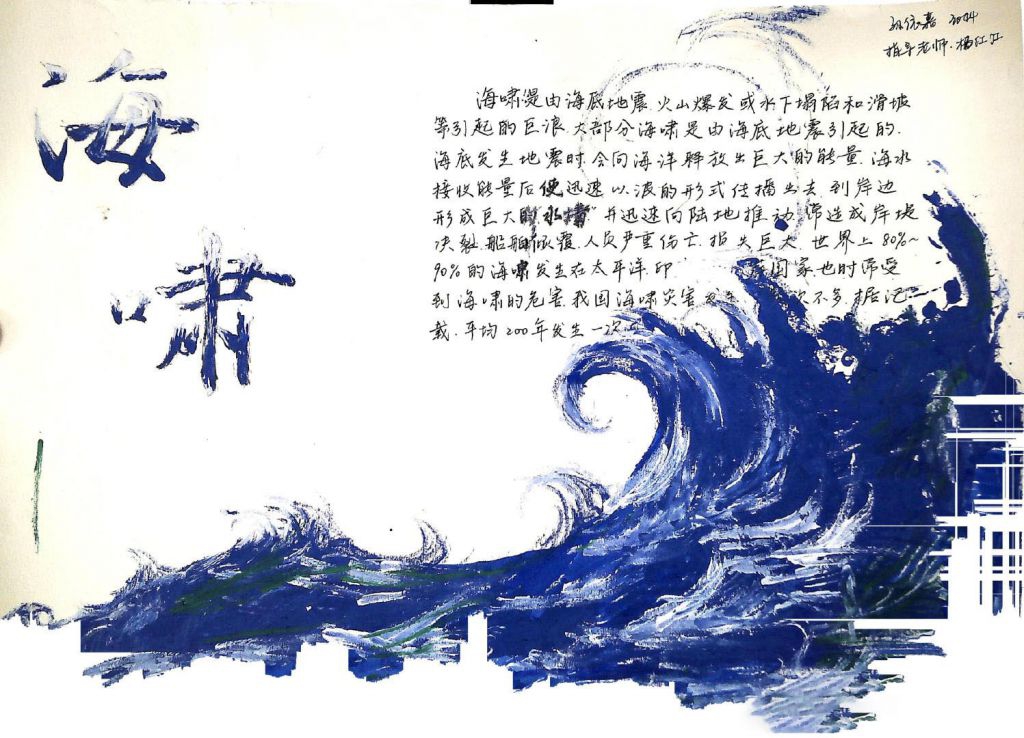 海
啸
2024
指导老师·杨红江
海啸是由海底地震.火山爆发或水下塌陷和滑坡
等引起的巨浪.大部分海啸是由海底地震引起的.
海底发生地震时会向海洋释放出巨大的能量.海水
接收能量后便迅速以波的形式传播出去.到岸边
形成巨大的"水墙"并迅速向陆地推动.常造成岸堤
决裂船舶倾覆.人员严重伤亡.损失巨大.世界上80%~
90%的海啸发生在太平洋.印 国家也时常受
到海啸的危害.我国海啸灾害发生 次不多.据记
载.平均200年发生一次